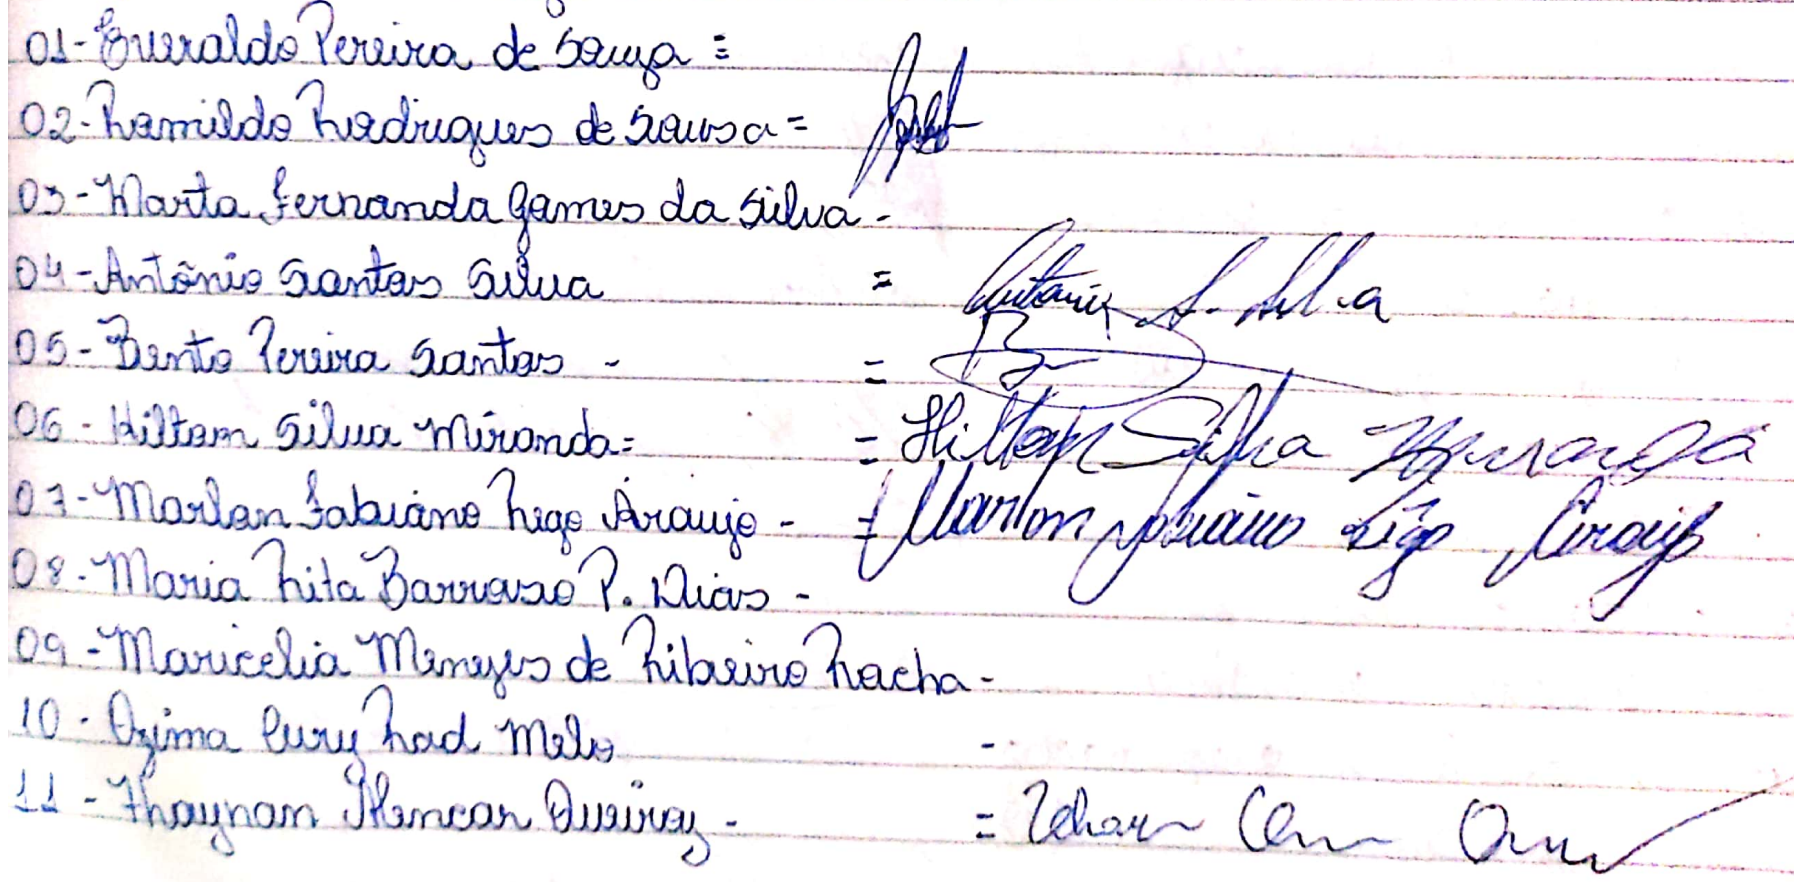 01- Everaldo Pereira de Souza =
02- Ramildo Rodrigues de Sousa =
03- Marta Fernanda Gomes da Silva -
04- Antônio Santos Silva = Antonio S. Silva
05- Bento Pereira Santos - =
06- Hiltom Silva Miranda = = Hilton Silva Miranda
07- Marlon Fabiano Rego Araujo - = Marlon Fabiano Rêgo Araujo
08- Maria Rita Barroso P. Dias -
09- Maricelia Menezes de Ribeiro Rocha -
10- Ozima Cury Rad Melo -
11- Thaynan Alencar Queiroz - =